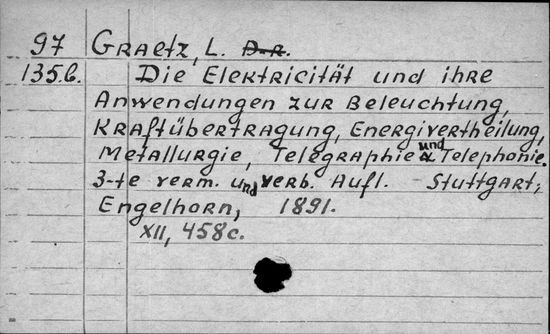 97 Graetz, L. D-r.
135.b. Die Elektricität und ihre
Anwendungen zur Beleuchtung,
Kraftübertragung, Energivertheilung,
Metallurgie, Telegraphie und Telephonie.
3-te verm. und verb. Aufl. Stuttgart,
Engelhorn, 1891.
XII, 458c.